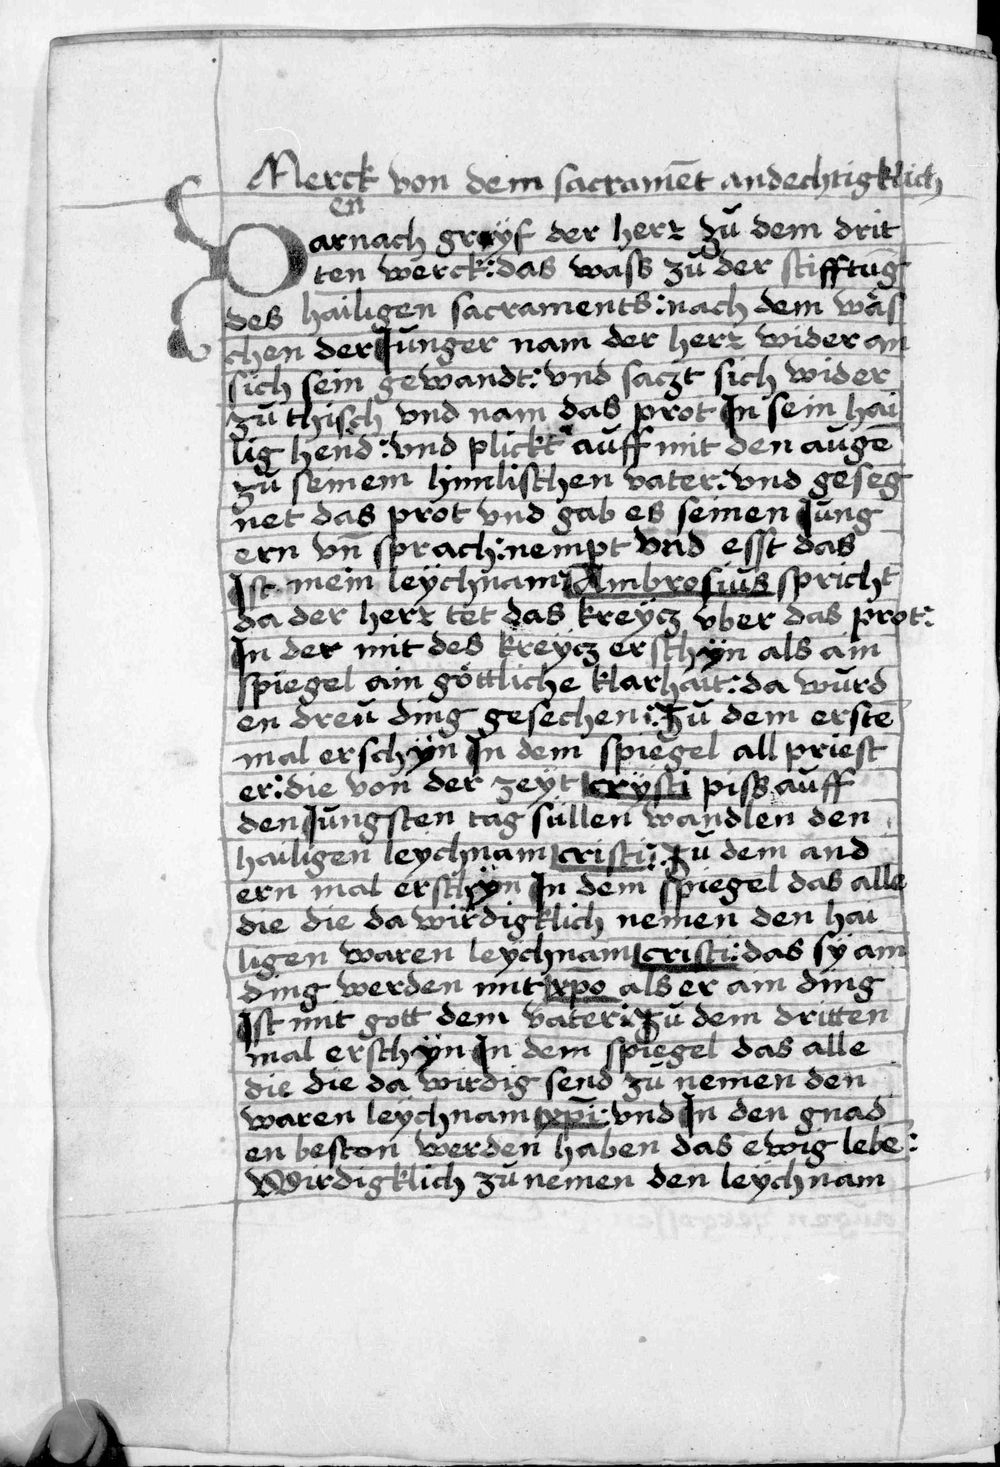 Merck von dem sacramēt andechtigklich
en
Darnach greÿf der herr zŭ dem drit
ten werck: das wass zŭ der stifftŭg
des hailigen sacraments: nach dem wäs
chen der Junger nam der herr wider an
sich sein gewandt: vnd saczt sich wider
zŭ thisch vnd nam das prot In sein hai
lig hend: vnd plickt auff mit den augē
zŭ seinem himlischen vater: vnd geseg
net das prot vnd gab es seinen Jung
ern vn̄ sprach: nempt vnd esst das
Ist mein leÿchnam: Ambrosius spricht
da der herr tet das kreÿcz vber das prot:
In der mit des kreÿcz erschÿn als ain
spiegel ain göttliche klarhait: da wurd
en dreŭ ding gesechen: Zŭ dem erstē
mal erschÿn In dem spiegel all priest
er: die von der zeÿt crÿsti piss auff
den Jungsten tag sullen wandlen den
hailigen leychnam cristi: Zŭ dem and
ern mal erschÿn In dem spiegel das alle
die die da wirdigklich nemen den hai
ligen waren leychnam cristi: das sÿ ain
ding werden mit xp̄o als er ain ding
Ist mit gott dem vater: Zŭ dem dritten
mal erschÿn In dem spiegel das alle
die die da wirdig send zŭ nemen den
waren leÿchnam xp̄i: vnd In den gnad
en beston werden haben das ewig lebē:
Wirdigklich zŭ nemen den leÿchnam